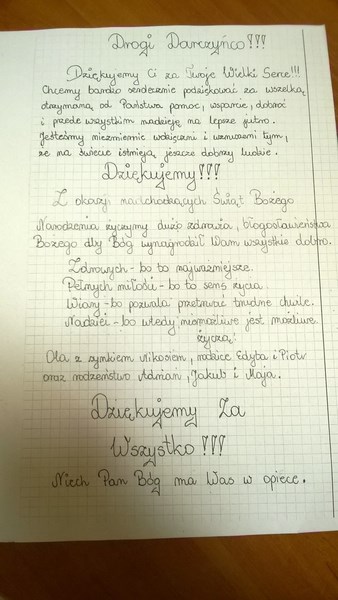 Drogi Darczyńco!!!
Dziękujemy Ci za Twoje Wielkie Serce!!!
Chcemy bardzo serdecznie podziękować za wszelką
otrzymaną od Państwa pomoc, wsparcie, dobroć
i przede wszystkim nadzieję na lepsze jutro.
Jesteśmy niezmiernie wdzięczni i wzruszeni tym,
że na świecie istnieją jeszcze dobrzy ludzie.
Dziękujemy!!!
Z okazji nadchodzących Świąt Bożego
Narodzenia życzymy dużo zdrowia, błogosławieństwa
Bożego aby Bóg wynagrodził Wam wszystkie dobro.
Zdrowych - bo to najważniejsze.
Pełnych miłości - bo to sens życia.
Wiary - bo pozwala przetrwać trudne chwile.
Nadziei - bo wtedy niemożliwe jest możliwe
życzą:
Ola z synkiem Nikosiem, rodzice Edyta i Piotr
oraz rodzeństwo Adrian, Jakub i Maja.
Dziękujemy Za
Wszystko!!!
Niech Pan Bóg ma Was w opiece.